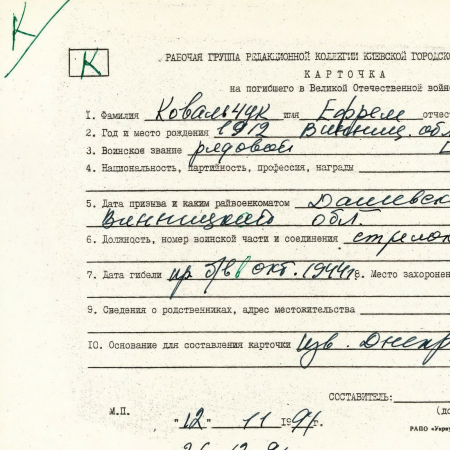 К
К
РАБОЧАЯ ГРУППА РЕДАКЦИОННОЙ КОЛЛЕГИИ КИЕВСКОЙ ГОРОДСКО
КАРТОЧКА
на погибшего в Великой Отечественной войне
1. Фамилия Ковальчук имя Ефрем отчест
2. Год и место рождения 1912 Винниц. обл
3. Воинское звание рядовой
4. Национальность, партийность, профессия, награды
5. Дата призыва и каким райвоенкоматом Дашевск
Винницкой обл.
6. Должность, номер воинской части и соединения стрелок
7. Дата гибели пр. б/в окт. 1944г. 8. Место захоронен
9. Сведения о родственниках, адрес местожительства
10. Основание для составления карточки изв. Днепр
СОСТАВИТЕЛЬ:
М.П. (до
"12" 11 1991г.
РАПО «Укрву